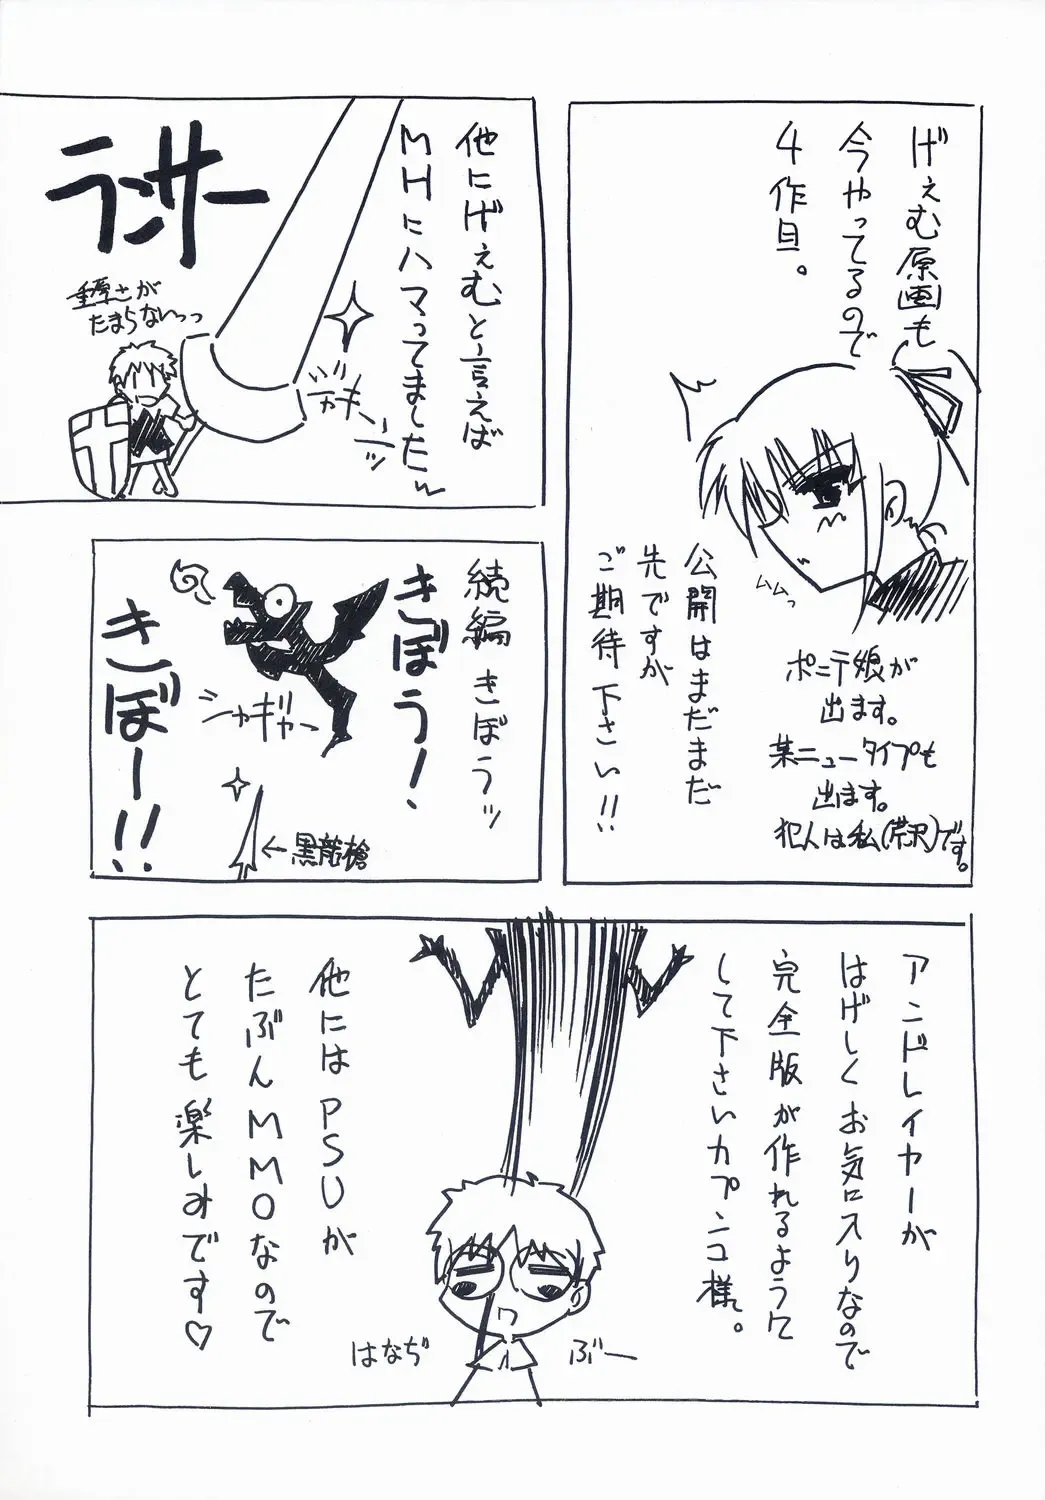 げぇむ原画も
今やってるので
4作目。
ムムっ
公開はまだまだ
先ですが
ご期待下さい!!
ポニテ娘が
出ます。
某ニュータイプも
出ます。
犯人は私(芹沢)です。
他にげぇむと言えば
MHにハマってましたw
ランサー
重厚さが
たまらないっっ
続編きぼうッ
きぼう!
きぼー!!
シャギャー
←黒龍槍
アンドレイヤーが
はげしくお気に入りなので
完全版が作れるように
して下さいカプンコ様。
ぶー
はなぢ
他にはPSUが
たぶんMMOなので
とても楽しみです♡